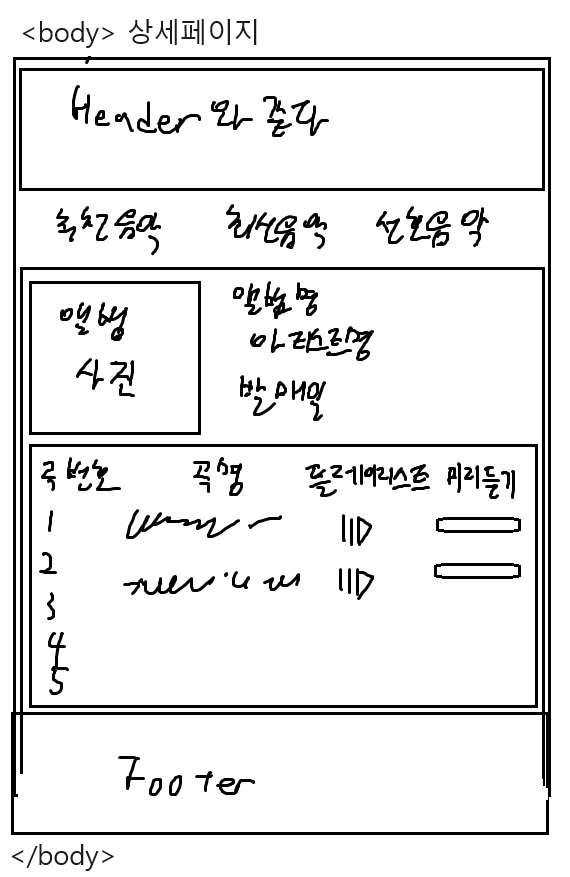 <body> 상세페이지
Header와 같다
추천음악 최신음악 선호음악
앨범
사진
앨범명
아티스트명
발매일
곡 번호 곡명 플레이리스트 미리듣기
1
2
3
4
5
Footer
</body>